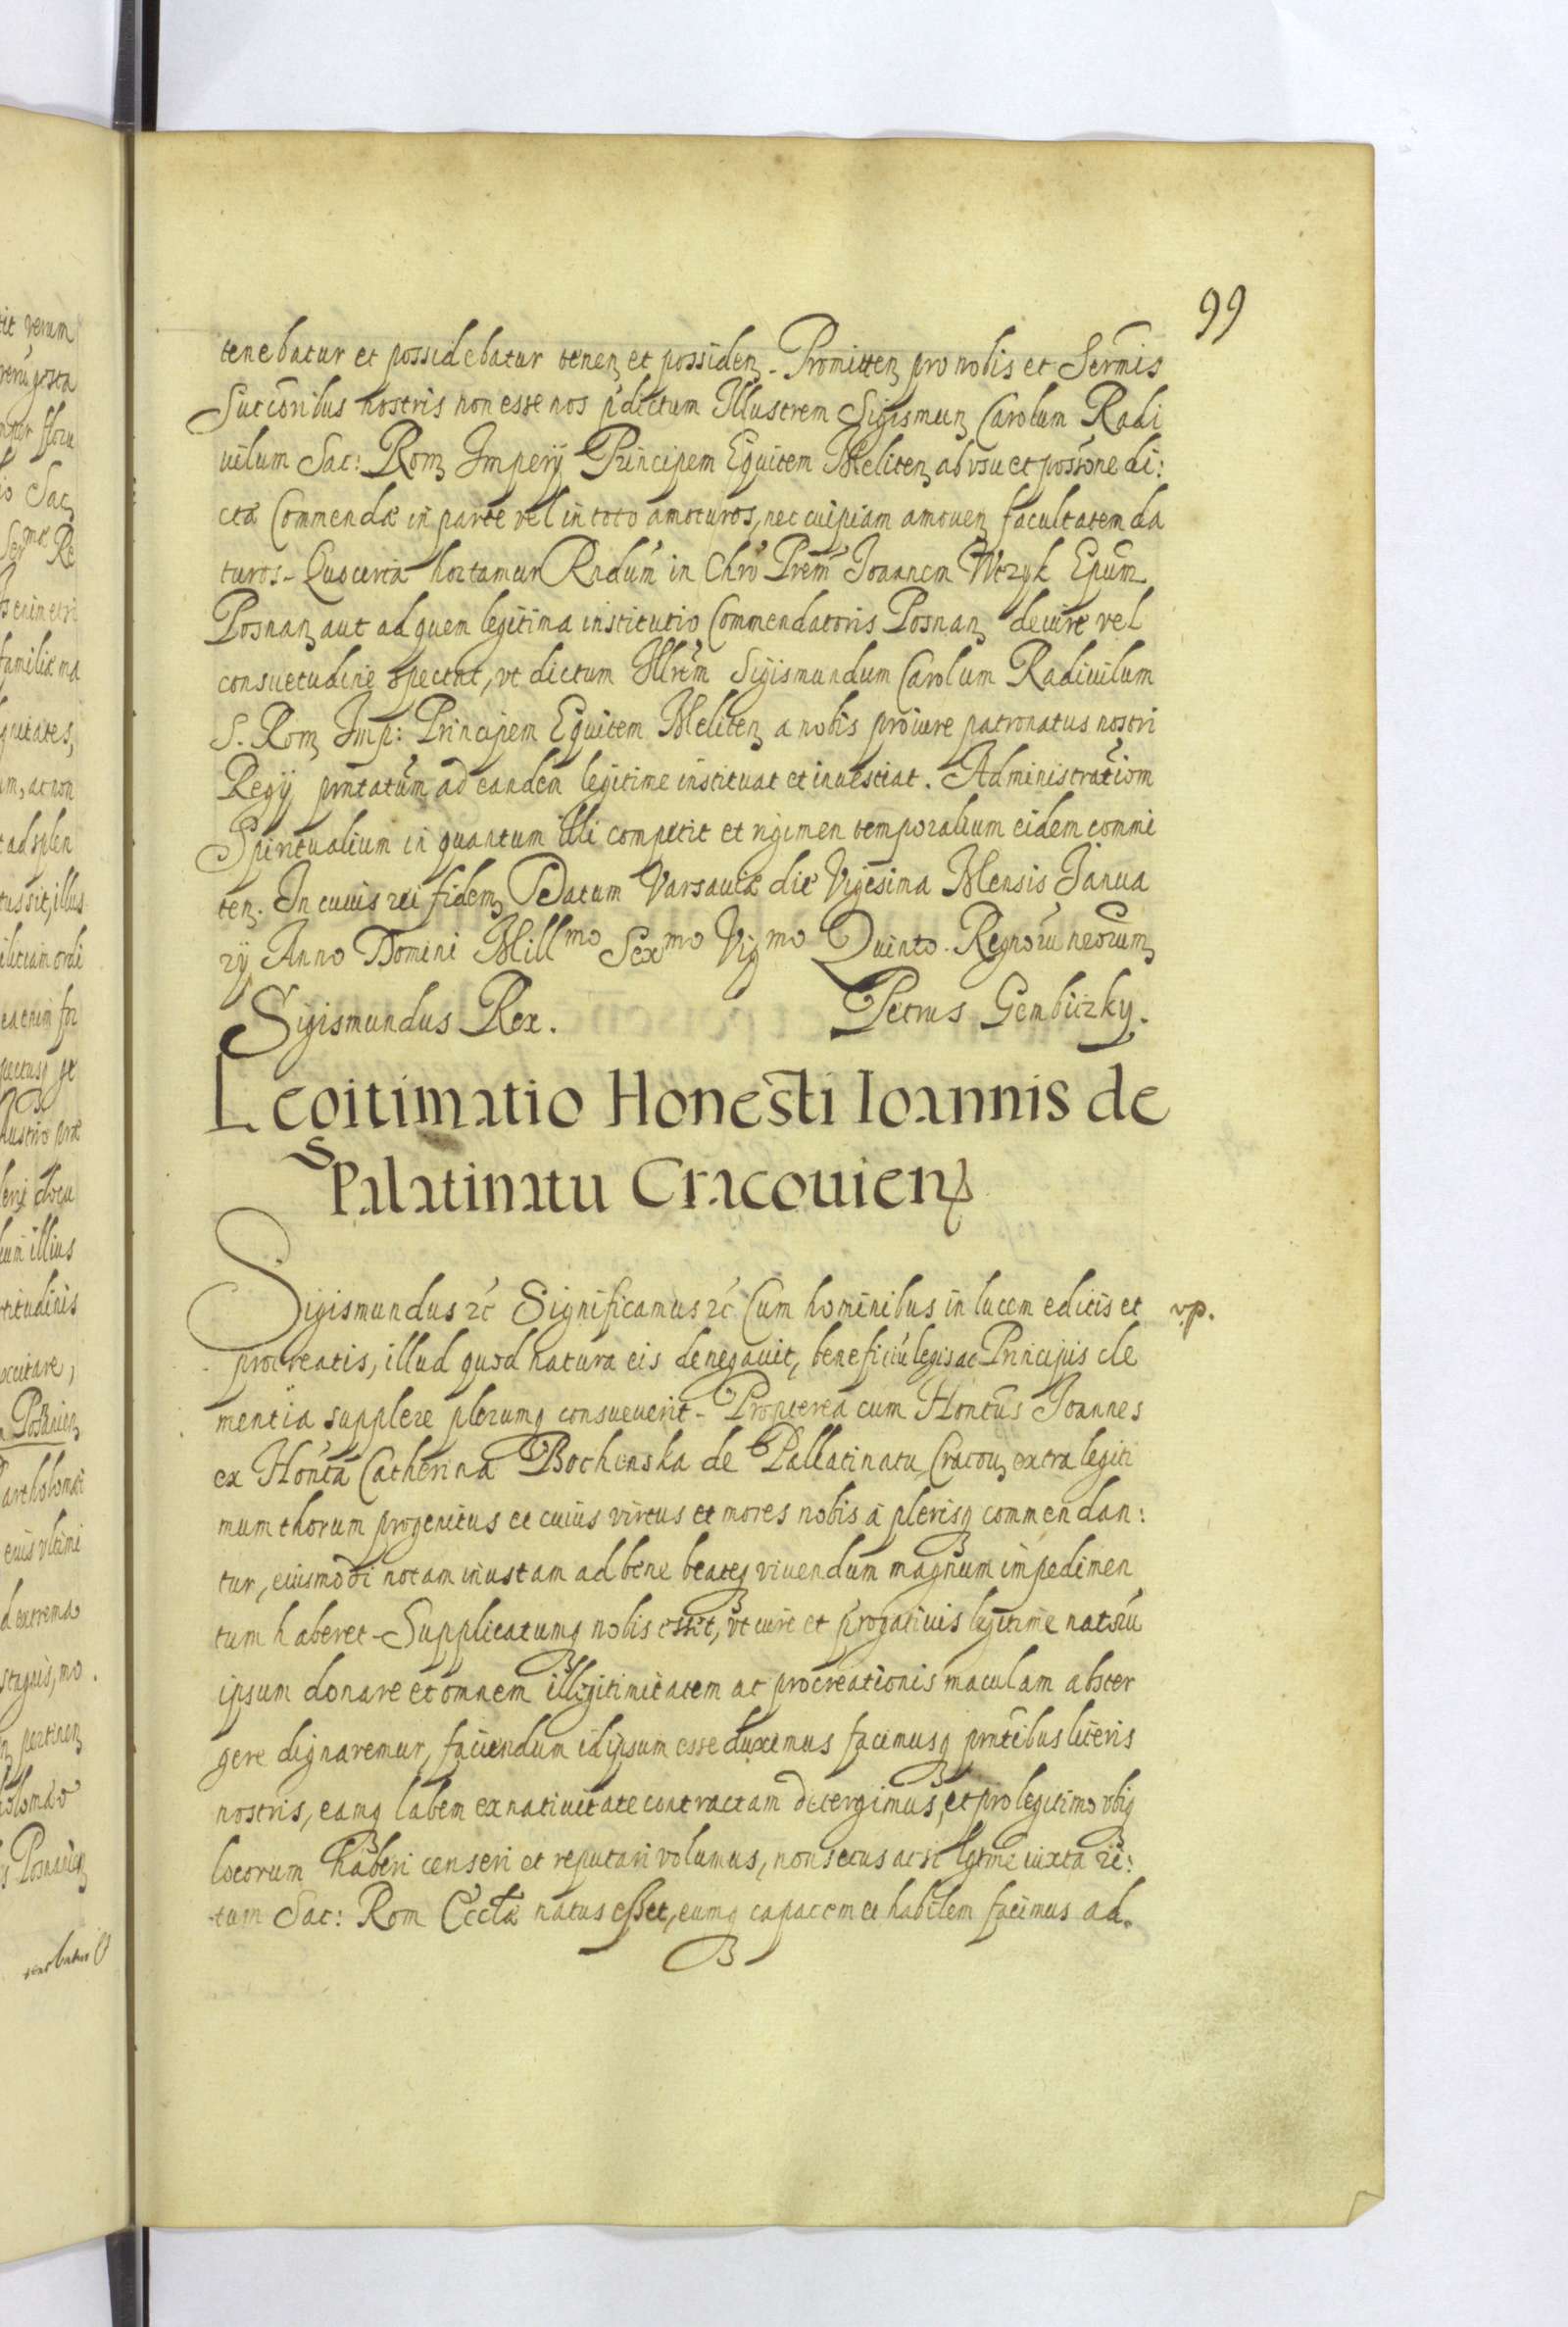 99
tenebatur et possidebatur tenen et possiden. Promitten pro nobis et Sermis
Succoribus nostris non esse nos pdictum Illustrem Sigismun Carolum Radi
uilum Sac: Rom Imperij Principem Equitem Meliten ab vsu et possone di:
ctæ Commendæ in parte vel in toto amoturos, nec cuipiam amouen facultatem da
turos. hortamur Rndum in Chro Prem Joannem Wezyk Epum
Posnan aut ad quem legitima institutio Commendatoris Posnan de iure vel
consuetudine spectat, vt dictum Illrem Sigismundum Carolum Radiuilum
S. Rom Imp: Principem Equitem Meliten a nobis pro iure patronatus nostri
Regij pntatum ad eandem legitime instituat et inuestiat. Administrationm
Spiritualium in quantum illi competit et regimen temporalium eidem commi
ten. In cuius rei fidem Datum Varsauiæ die Vigesima Mensis Janua
rij Anno Domini Millmo Sexmo Vigmo Quinto. Regnoru neorum
Sigismundus Rex. Petrus Gembiczky.
Legitimatio Honesti Ioannis de
Palatinatu Cracouien
Sigismundus etc Significamus etc Cum hominibus in lucem editis et
v.p.
procreatis, illud quod natura eis denegauit, beneficiu legis ac Principis cle
mentia supplere plerumq consueuerit. Propterea cum Hontus Joannes
ex Honta Catherina Bochenska de Pallatinatu Cracou extra legiti
mum thorum progenitus et cuius virtus et mores nobis a plerisq commendan:
tur, eiusmodi notam inustam ad bene beateq viuendum magnum impedimen
tum haberet. Supplicatumq nobis esset, vt iure et progatiuis legitime natoru
ipsum donare et omnem illegitimitatem ac procreationis maculam abster
gere dignaremur, faciendum id ipsum esse duximus facimusq pntibus literis
nostris, eamq labem ex natiuitate contractam detergimus, et pro legitimo vbiq
locorum haberi censeri et reputari volumus, non secus ac si lgtme iuxta ri:
tum Sac: Rom Eccltæ natus esset, eumq capacem et habilem facimus ad.